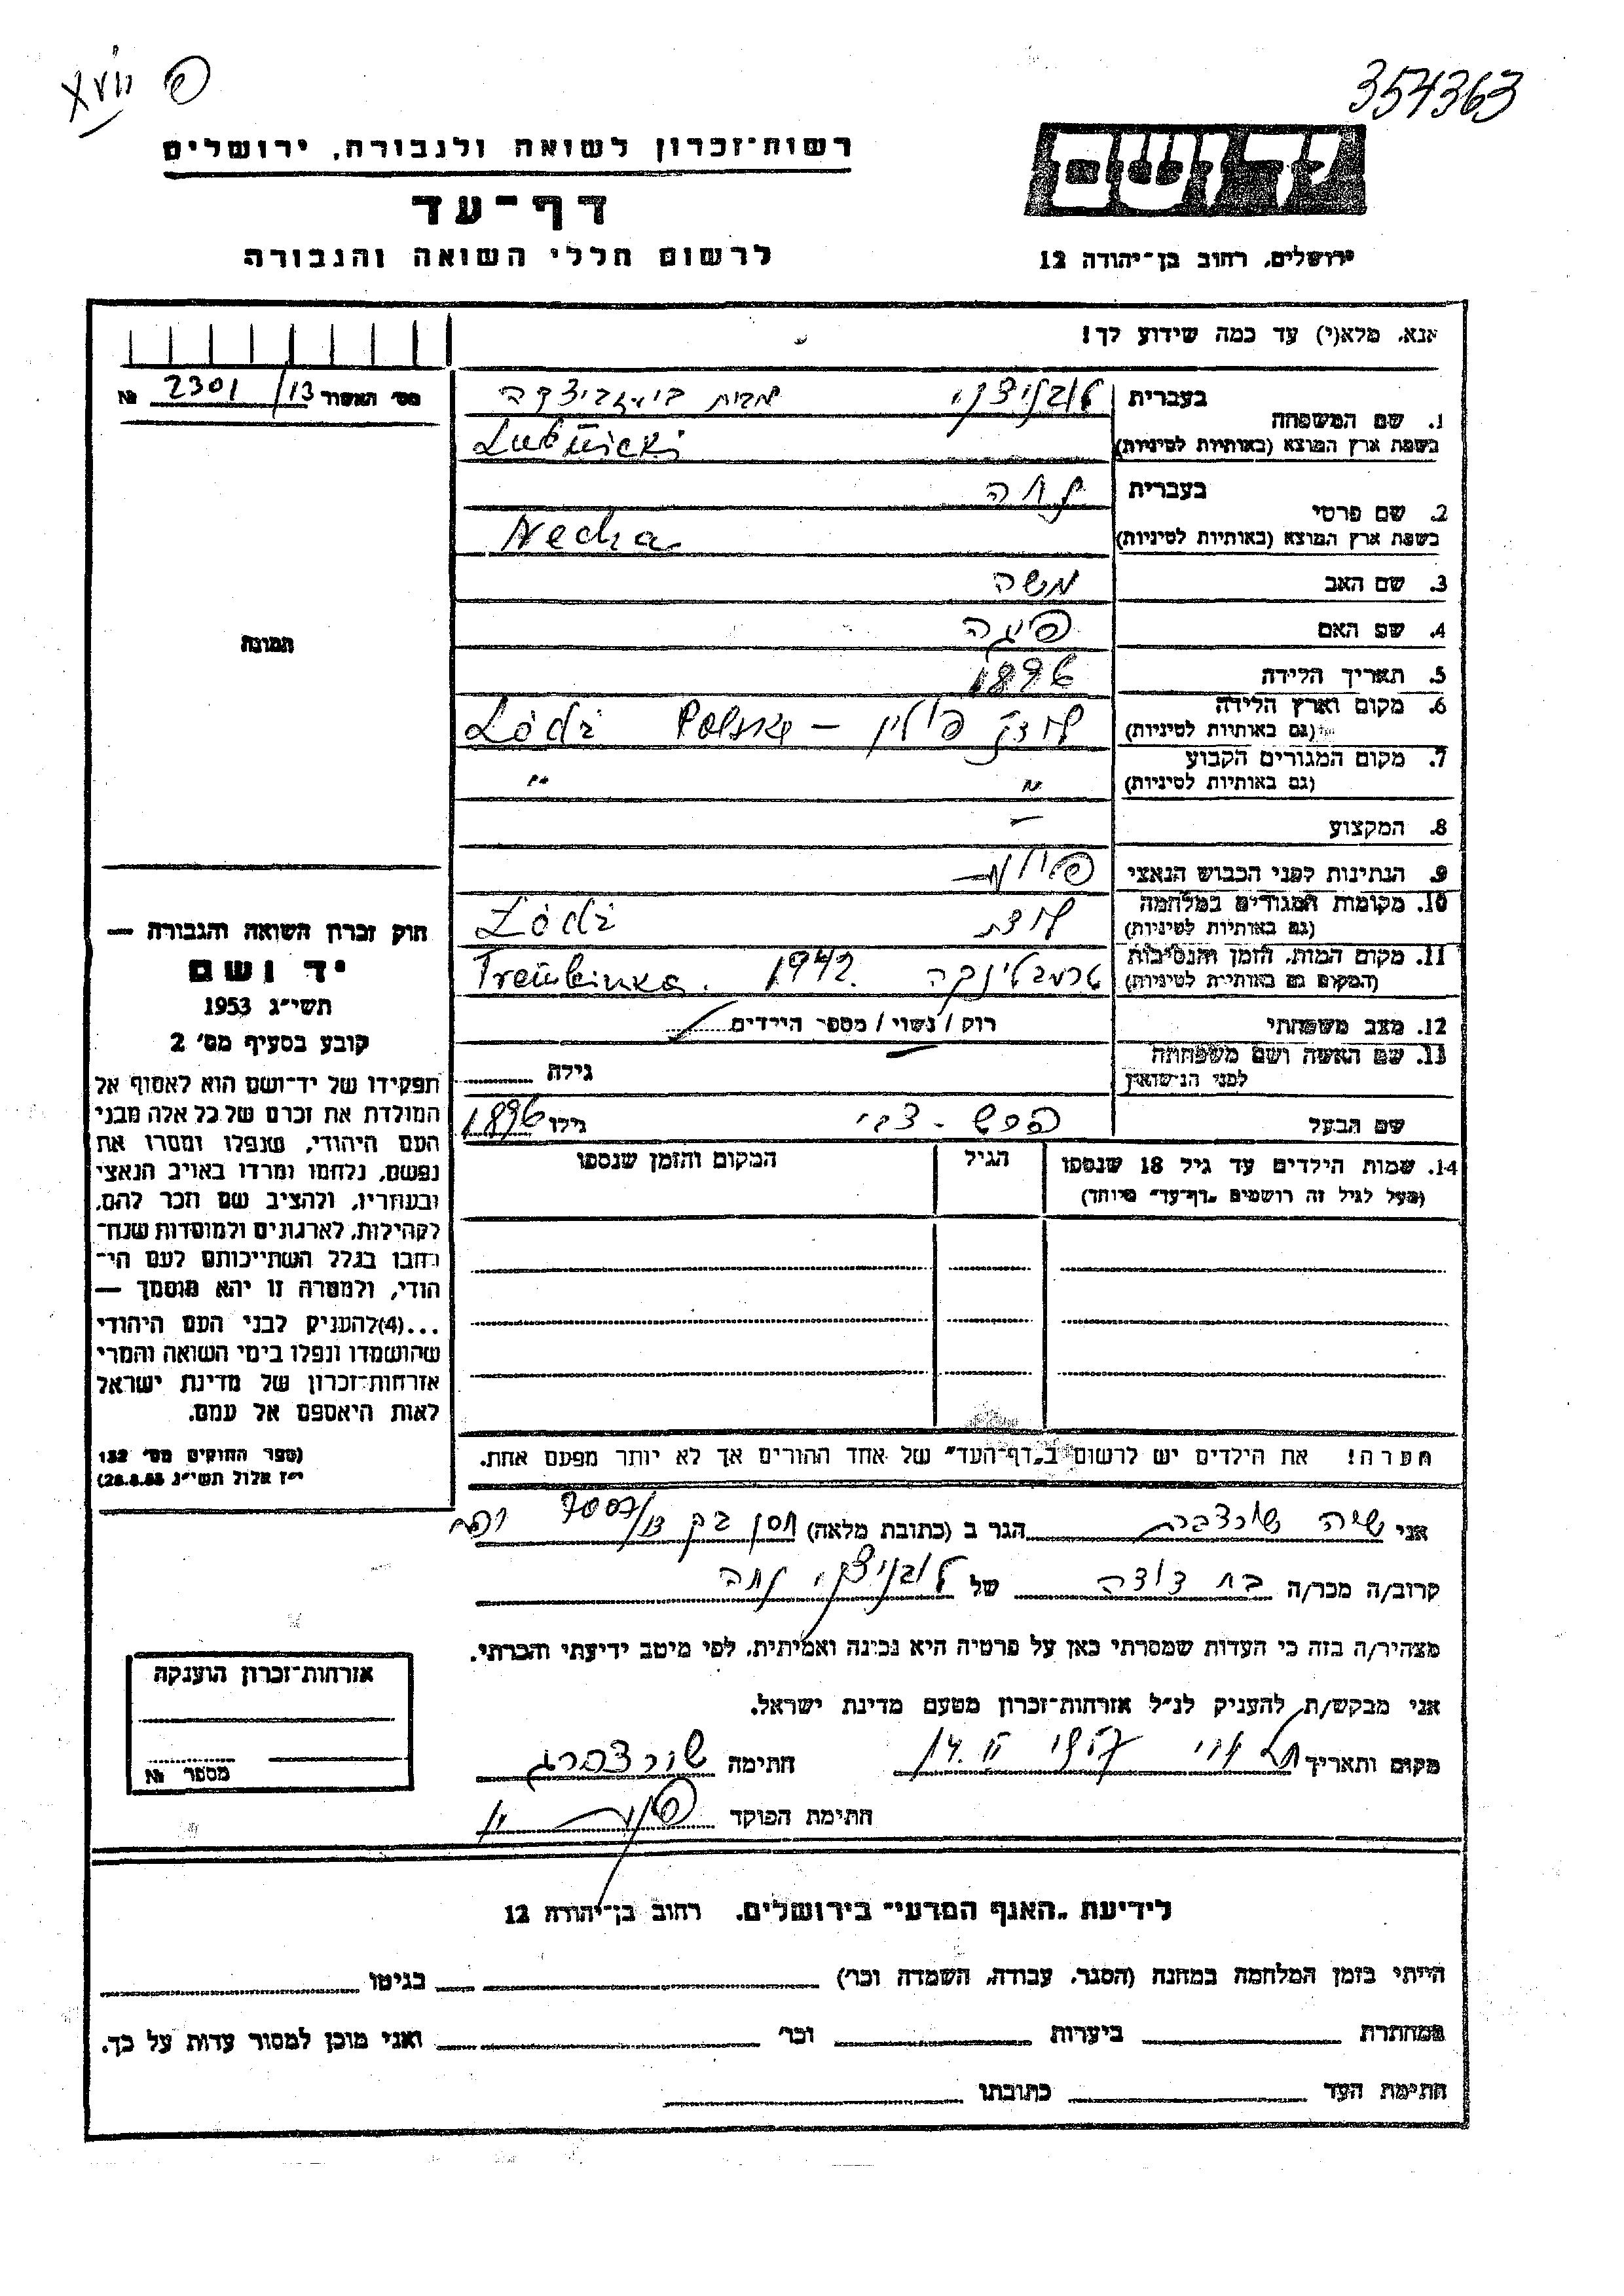 354363
XVII פ
יד ושם
רשות-זכרון לשואה ולגבורה, ירושלים
דף-עד
לרשום חללי השואה והגבורה
ירושלים, רחוב בן-יהודה 12
אנא, מלא(י) עד כמה שידוע לך!
מס' האשור 2301/13 №
1. שם המשפחה בעברית לובניצקי מבית
בשפת ארץ המוצא (באותיות לטיניות) Lubnicki
2. שם פרטי בעברית נחה
בשפת ארץ המוצא (באותיות לטיניות) Necha
3. שם האב משה
4. שם האם פיגה
5. תאריך הלידה 1896
6. מקום וארץ הלידה (גם באותיות לטיניות) לודז' פולין – Polska Łódź
7. מקום המגורים הקבוע (גם באותיות לטיניות) " "
8. המקצוע –
9. הנתינות לפני הכבוש הנאצי פולנית
10. מקומות המגורים במלחמה (גם באותיות לטיניות) לודז' Łódź
11. מקום המות, הזמן והנסיבות (המקום גם באותיות לטיניות) טרמבלינקה 1942. Tremblinka.
12. מצב משפחתי רוק / נשוי / מספר הילדים
13. שם האשה ושם משפחתה לפני הנישואין – גילה
שם הבעל הרש - צבי גילו 1896
14. שמות הילדים עד גיל 18 שנספו
(מעל לגיל זה רושמים "דף-עד" מיוחד)
הגיל
המקום והזמן שנספו
הערה! את הילדים יש לרשום ב"דף-העד" של אחד ההורים אך לא יותר מפעם אחת.
תמונה
חוק זכרון השואה והגבורה —
יד ושם
תשי"ג 1953
קובע בסעיף מס' 2
תפקידו של יד-ושם הוא לאסוף אל
המולדת את זכרם של כל אלה מבני
העם היהודי, שנפלו ומסרו את
נפשם, נלחמו ומרדו באויב הנאצי
ובעוזריו, ולהציב שם וזכר להם,
לקהילות, לארגונים ולמוסדות שנח-
רבו בגלל השתייכותם לעם הי-
הודי, ולמטרה זו יהא מוסמך —
...(4) להעניק לבני העם היהודי
שהושמדו ונפלו בימי השואה והמרי
אזרחות-זכרון של מדינת ישראל
לאות היאספם אל עמם.
(ספר החוקים מס' 132
י"ז אלול תשי"ג 28.8.53)
אני שורצברג הגר ב (כתובת מלאה) חסן בק
קרוב/ה מכר/ה בת דודה של לובניצקי נחה
מצהיר/ה בזה כי העדות שמסרתי כאן על פרטיה היא נכונה ואמיתית, לפי מיטב ידיעתי והכרתי.
אני מבקש/ת להעניק לנ"ל אזרחות-זכרון מטעם מדינת ישראל.
מקום ותאריך 14. 1957 חתימה שורצברג
חתימת הפוקד
אזרחות-זכרון הוענקה
מספר №
לידיעת "האגף המדעי" בירושלים, רחוב בן-יהודה 12
הייתי בזמן המלחמה במחנה (הסגר, עבודה, השמדה וכו') בגיטו
במחתרת ביערות וכו' ואני מוכן למסור עדות על כך.
חתימת העד כתובתו